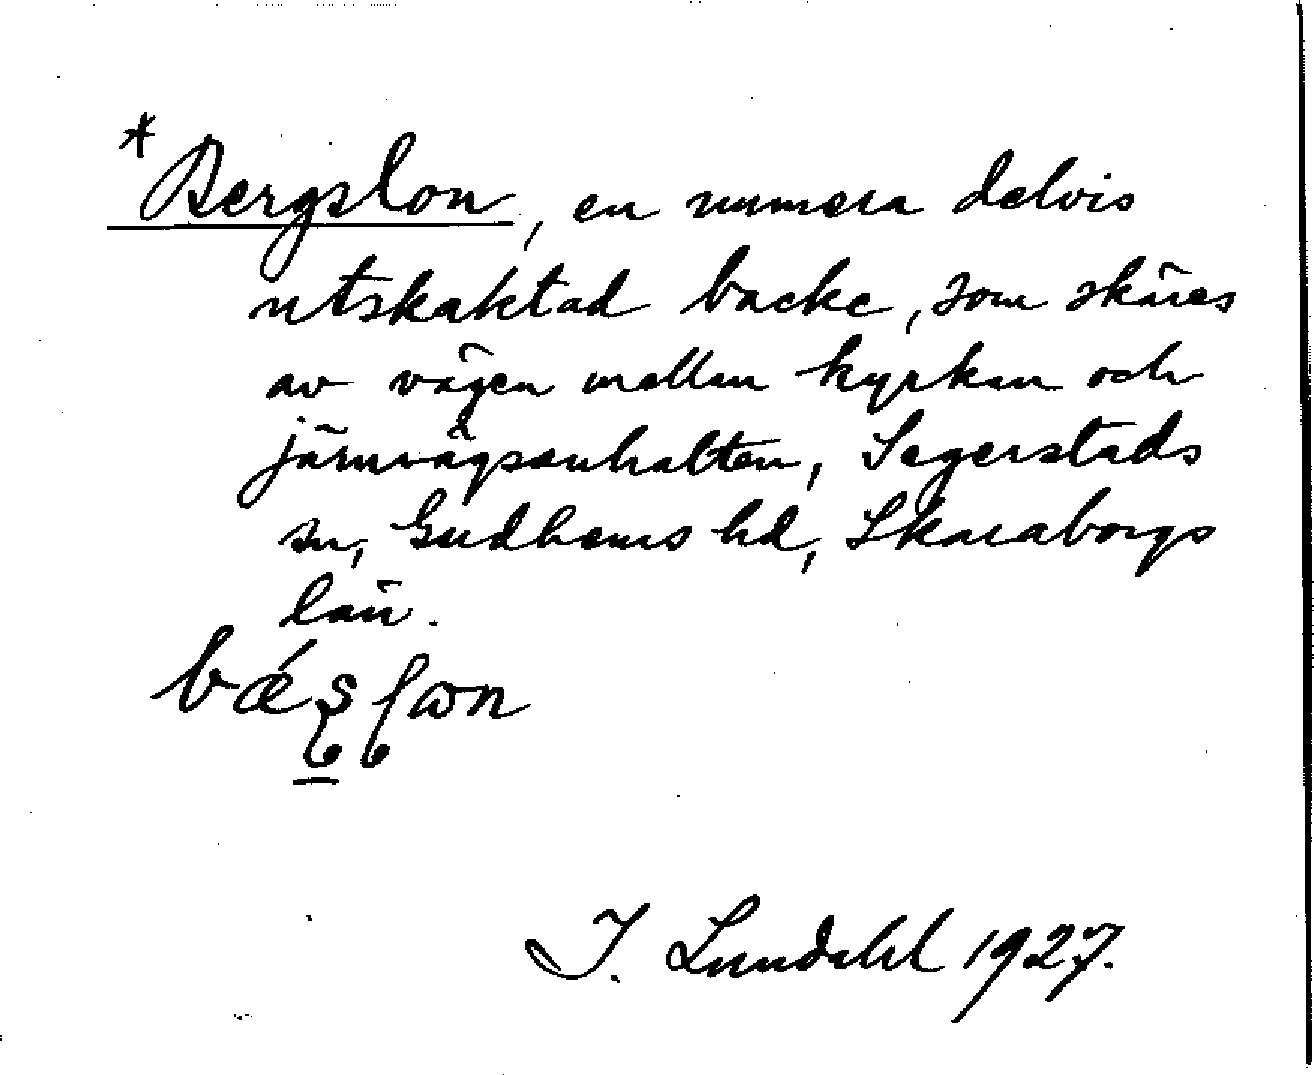 *Bergslon, en numera delvis
utskaktad backe, som skäres
av vägen mellan kyrkan och
järnvägsanhalten, Segerstads
sn, Gudhems hd, Skaraborgs
län.
I. Lundahl 1927.